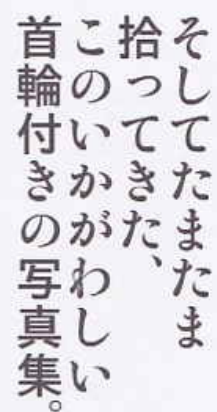 そしてたまたま
拾ってきた、
このいかがわしい
首輪付きの写真集。